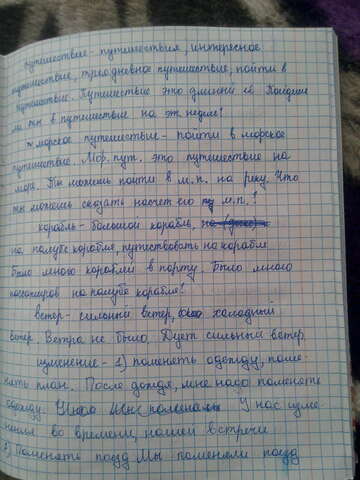 путешествие - путешествия, интересное
путешествие, трёхдневное путешествие, пойти в
путешествие. Путешествие это длиною Пойдёт
ли ты в путешествие на эт. неделе?
морское путешествие - пойти в морское
путешествие. Мор. пут. это путешествие на
море. Ты можешь пойти в м.п. на реку. Что
ты можешь сказать насчёт его м.п.?
корабль - большой корабль,
на палубе корабля, путешествовать на корабле
Было много кораблей в порту. Было много
пассажиров на палубе корабля!
ветер - сильный ветер, холодный
ветер. Ветра не было. Дует сильный ветер
изменение - 1) поменять одежду, поме-
нять план. После дождя, мне надо поменять
одежду. У нас
У нас изме-
нения во времени нашей встречи
2) Поменять поезд Мы поменяли поезд